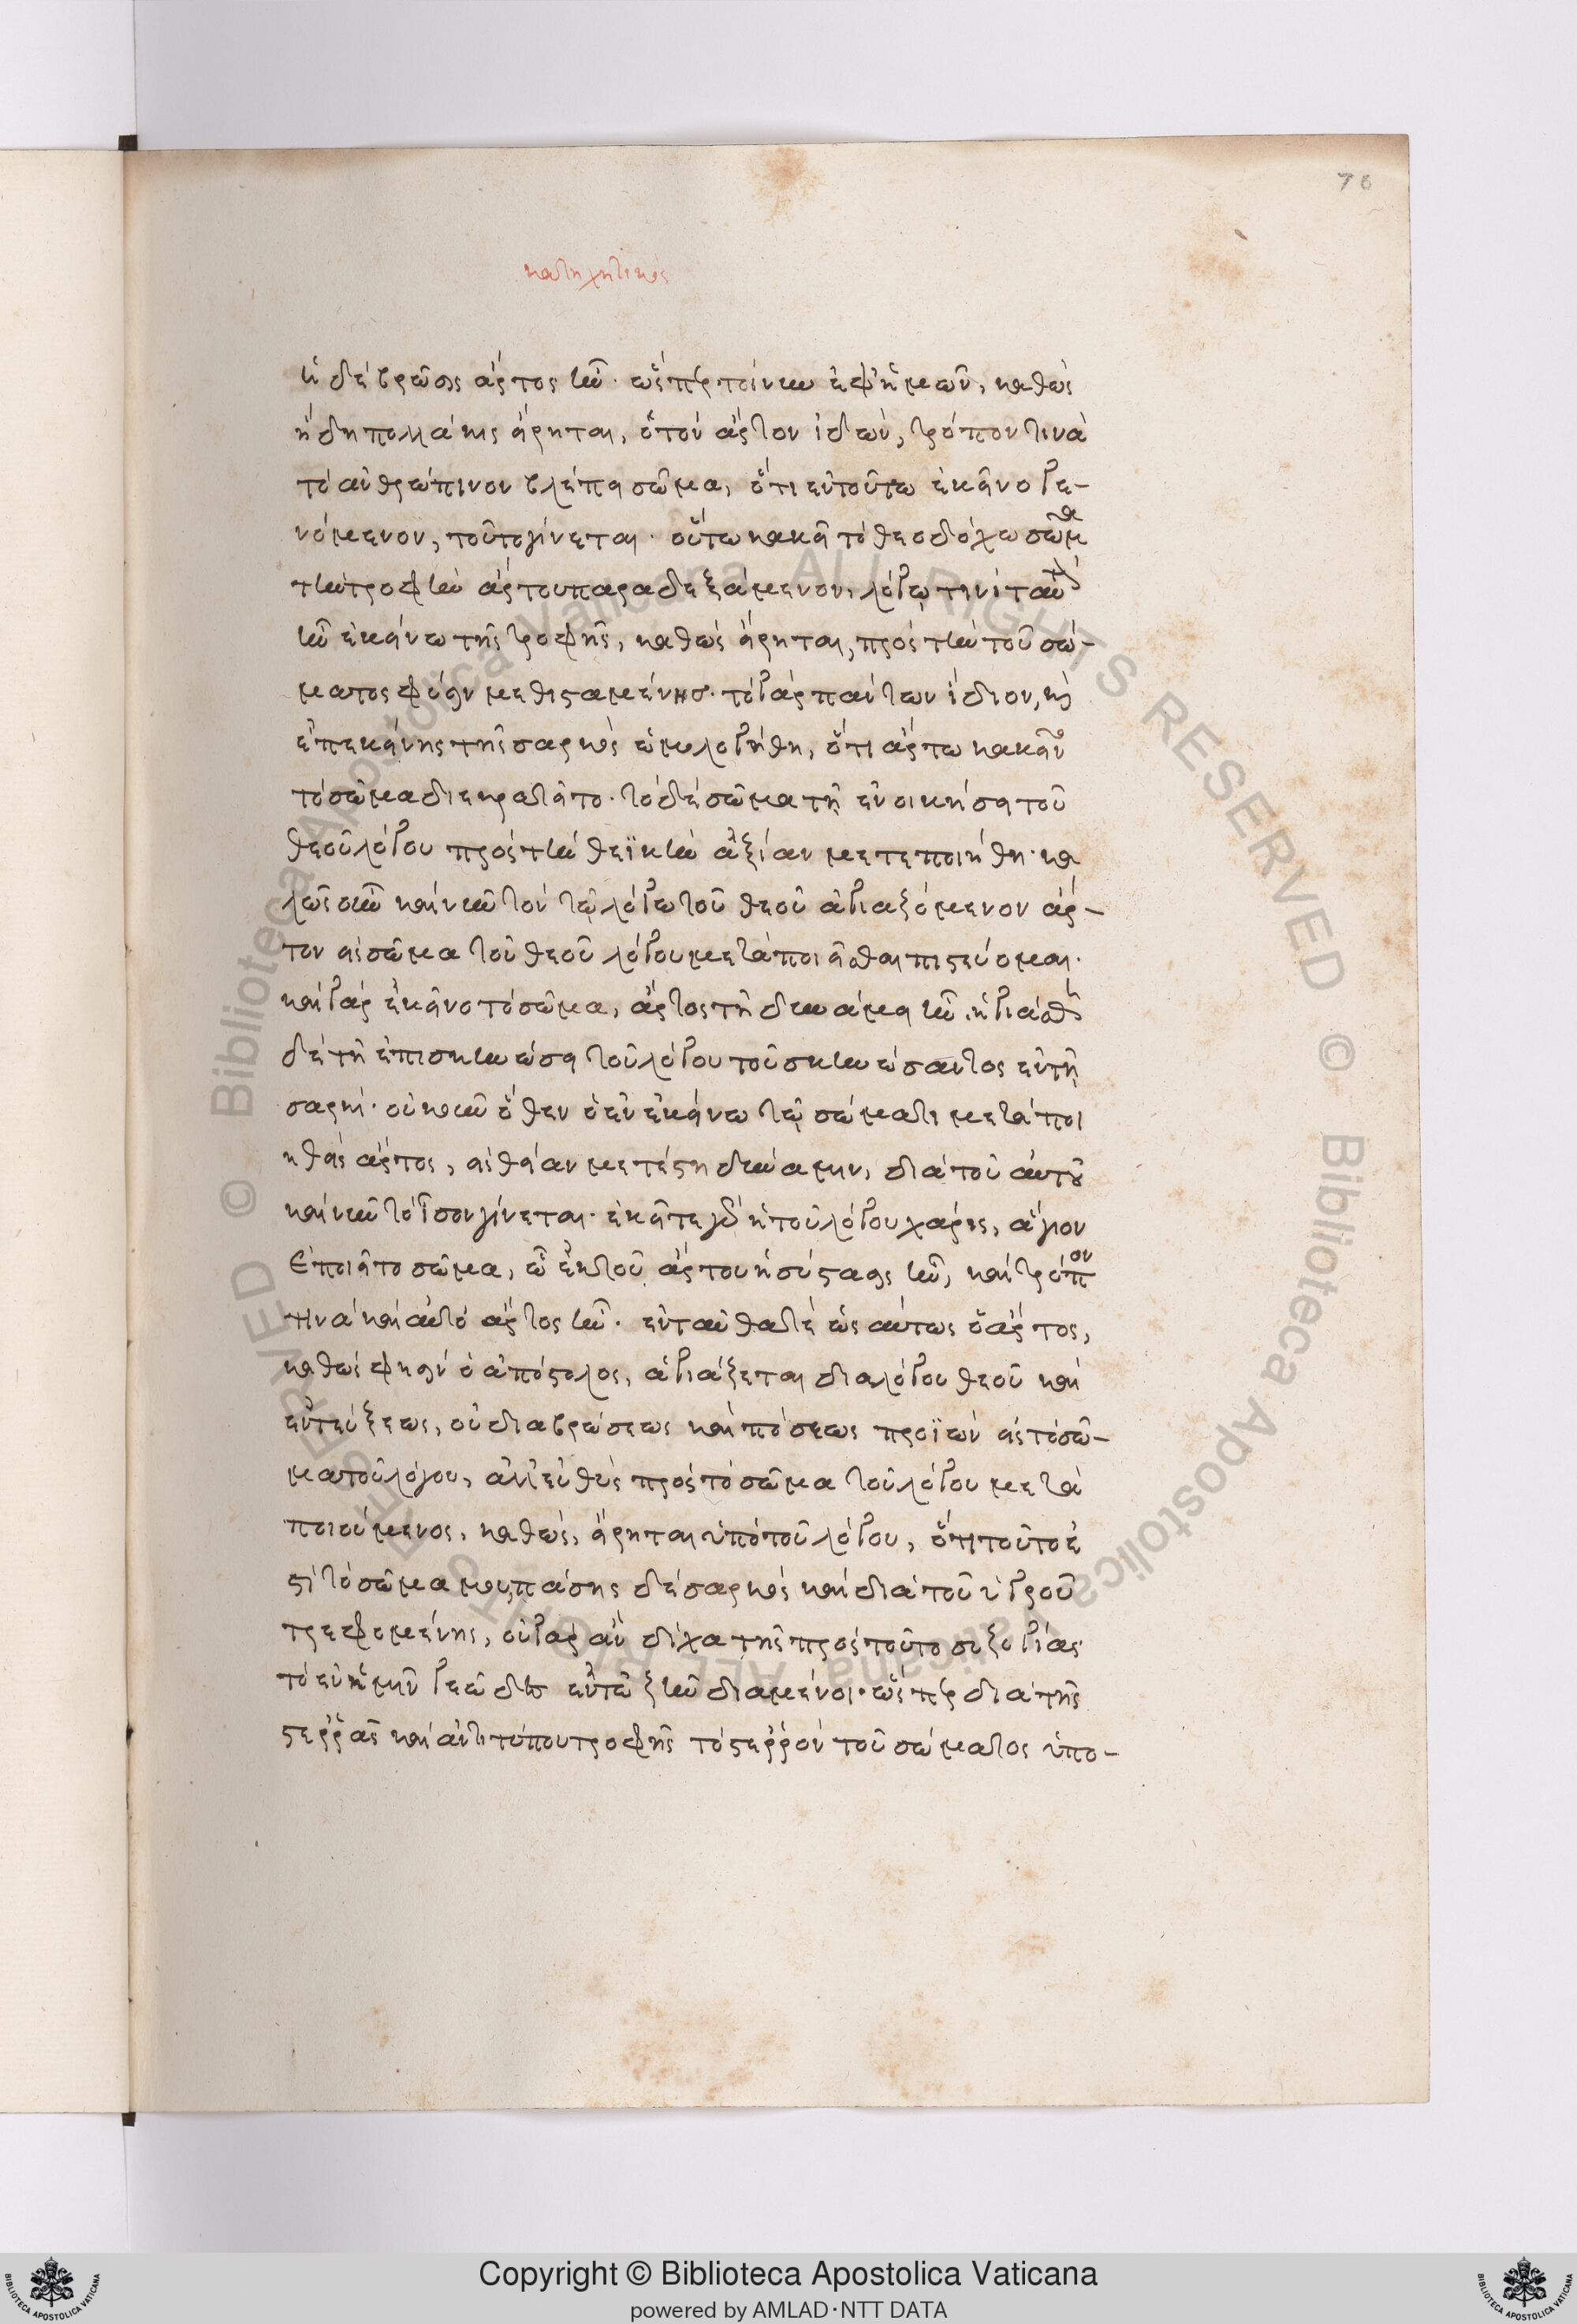 70
κατηχητικός
ἡ δὲ βρῶσις ἄρτος ἦν· ὥσπερ τοίνυν ἐφ' ἡμῶν, καθὼς
ἤδη πολλάκις εἴρηται, ὁ τὸν ἄρτον ἰδὼν, τρόπον τινὰ
τὸ ἀνθρώπινον βλέπει σῶμα, ὅτι ἐν τούτω ἐκεῖνο γε-
νόμενον, τοῦτο γίνεται· οὕτω κακεῖ τὸ θεοδόχω σῶμα
τὴν τροφὴν ἄρτου παραδεξάμενον, λόγῳ τινὶ ταυτὸ
ἦν ἐκείνω τῆς τροφῆς, καθὼς εἴρηται, πρὸς τὴν τοῦ σώ-
ματος φύσιν μεθισταμένης· τὸ γὰρ πάντων ἴδιον, καὶ
ἐπ' ἐκείνης τῆς σαρκὸς ὡμολογήθη, ὅτι ἄρτω κακεῖνο
τὸ σῶμα διεκρατεῖτο· τὸ δὲ σῶμα τῇ ἐνοικήσει τοῦ
θεοῦ λόγου πρὸς τὴν θεϊκὴν ἀξίαν μετεποιήθη· κα
λῶς οὖν καὶ νῦν τὸν τῷ λόγω τοῦ θεοῦ ἁγιαζόμενον ἄρ-
τον εἰς σῶμα τοῦ θεοῦ λόγου μεταποιεῖσθαι πιστεύομαι·
καὶ γὰρ ἐκεῖνο τὸ σῶμα, ἄρτος τῇ δυνάμει ἦν· ἡγιάσθη
δὲ τῇ ἐπισκηνώσει τοῦ λόγου τοῦ σκηνώσαντος ἐν τῇ
σαρκί· οὐκοῦν ὅθεν ὁ ἐν ἐκείνω τῷ σώματι μεταποι
ηθεὶς ἄρτος, εἰς θείαν μετέστη δύναμιν, διὰ τοῦ αὐτοῦ
καὶ νῦν τὸ ἴσον γίνεται· ἐκεῖ τε γὰρ ἡ τοῦ λόγου χάρις, ἅγιον
ἐποιεῖτο σῶμα, ᾧ ἐκ τοῦ ἄρτου ἡ σύστασις ἦν, καὶ τρόπον
τινὰ καὶ αὐτὸ ἄρτος ἦν· ἐνταῦθα τε ὡς αύτως ὁ ἄρτος,
καθώς φησιν ὁ ἀπόστολος, ἁγιάζεται διὰ λόγου θεοῦ καὶ
ἐντεύξεως, οὐ διὰ βρώσεως καὶ πόσεως προϊὼν εἰς τὸ σῶ-
μα τοῦ λόγου, ἀλλ' εὐθὺς πρὸς τὸ σῶμα τοῦ λόγου μετα
ποιούμενος, καθὼς, εἴρηται ὑπὸ τοῦ λόγου, ὅτι τοῦτο ἐ
στὶ τὸ σῶμα μου, πάσης δὲ σαρκὸς καὶ διὰ τοῦ ὑγροῦ
τρεφομένης, οὐ γὰρ ἂν δίχα τῆς πρὸς τοῦτο συζυγίας
τὸ ἐν ἡμῖν γεῶδες ἐν τῷ ζῆν διαμένοι· ὥσπερ διὰ τῆς
στερρᾶς καὶ ἀντιτύπου τροφῆς τὸ στερρὸν τοῦ σώματος ὑπο-
Copyright © Biblioteca Apostolica Vaticana
powered by AMLAD·NTT DATA